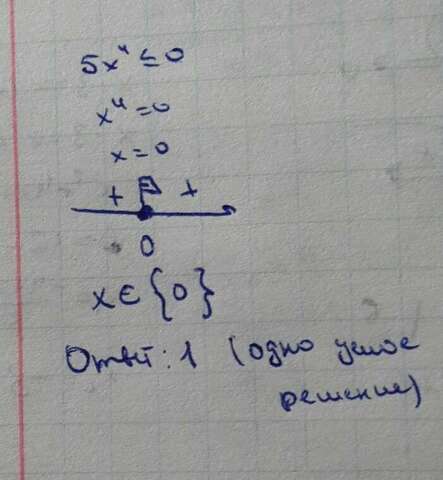 5x⁴ ≤ 0
x⁴ = 0
x = 0
+ +
0
x ∈ {0}
Ответ: 1 (одно целое
решение)